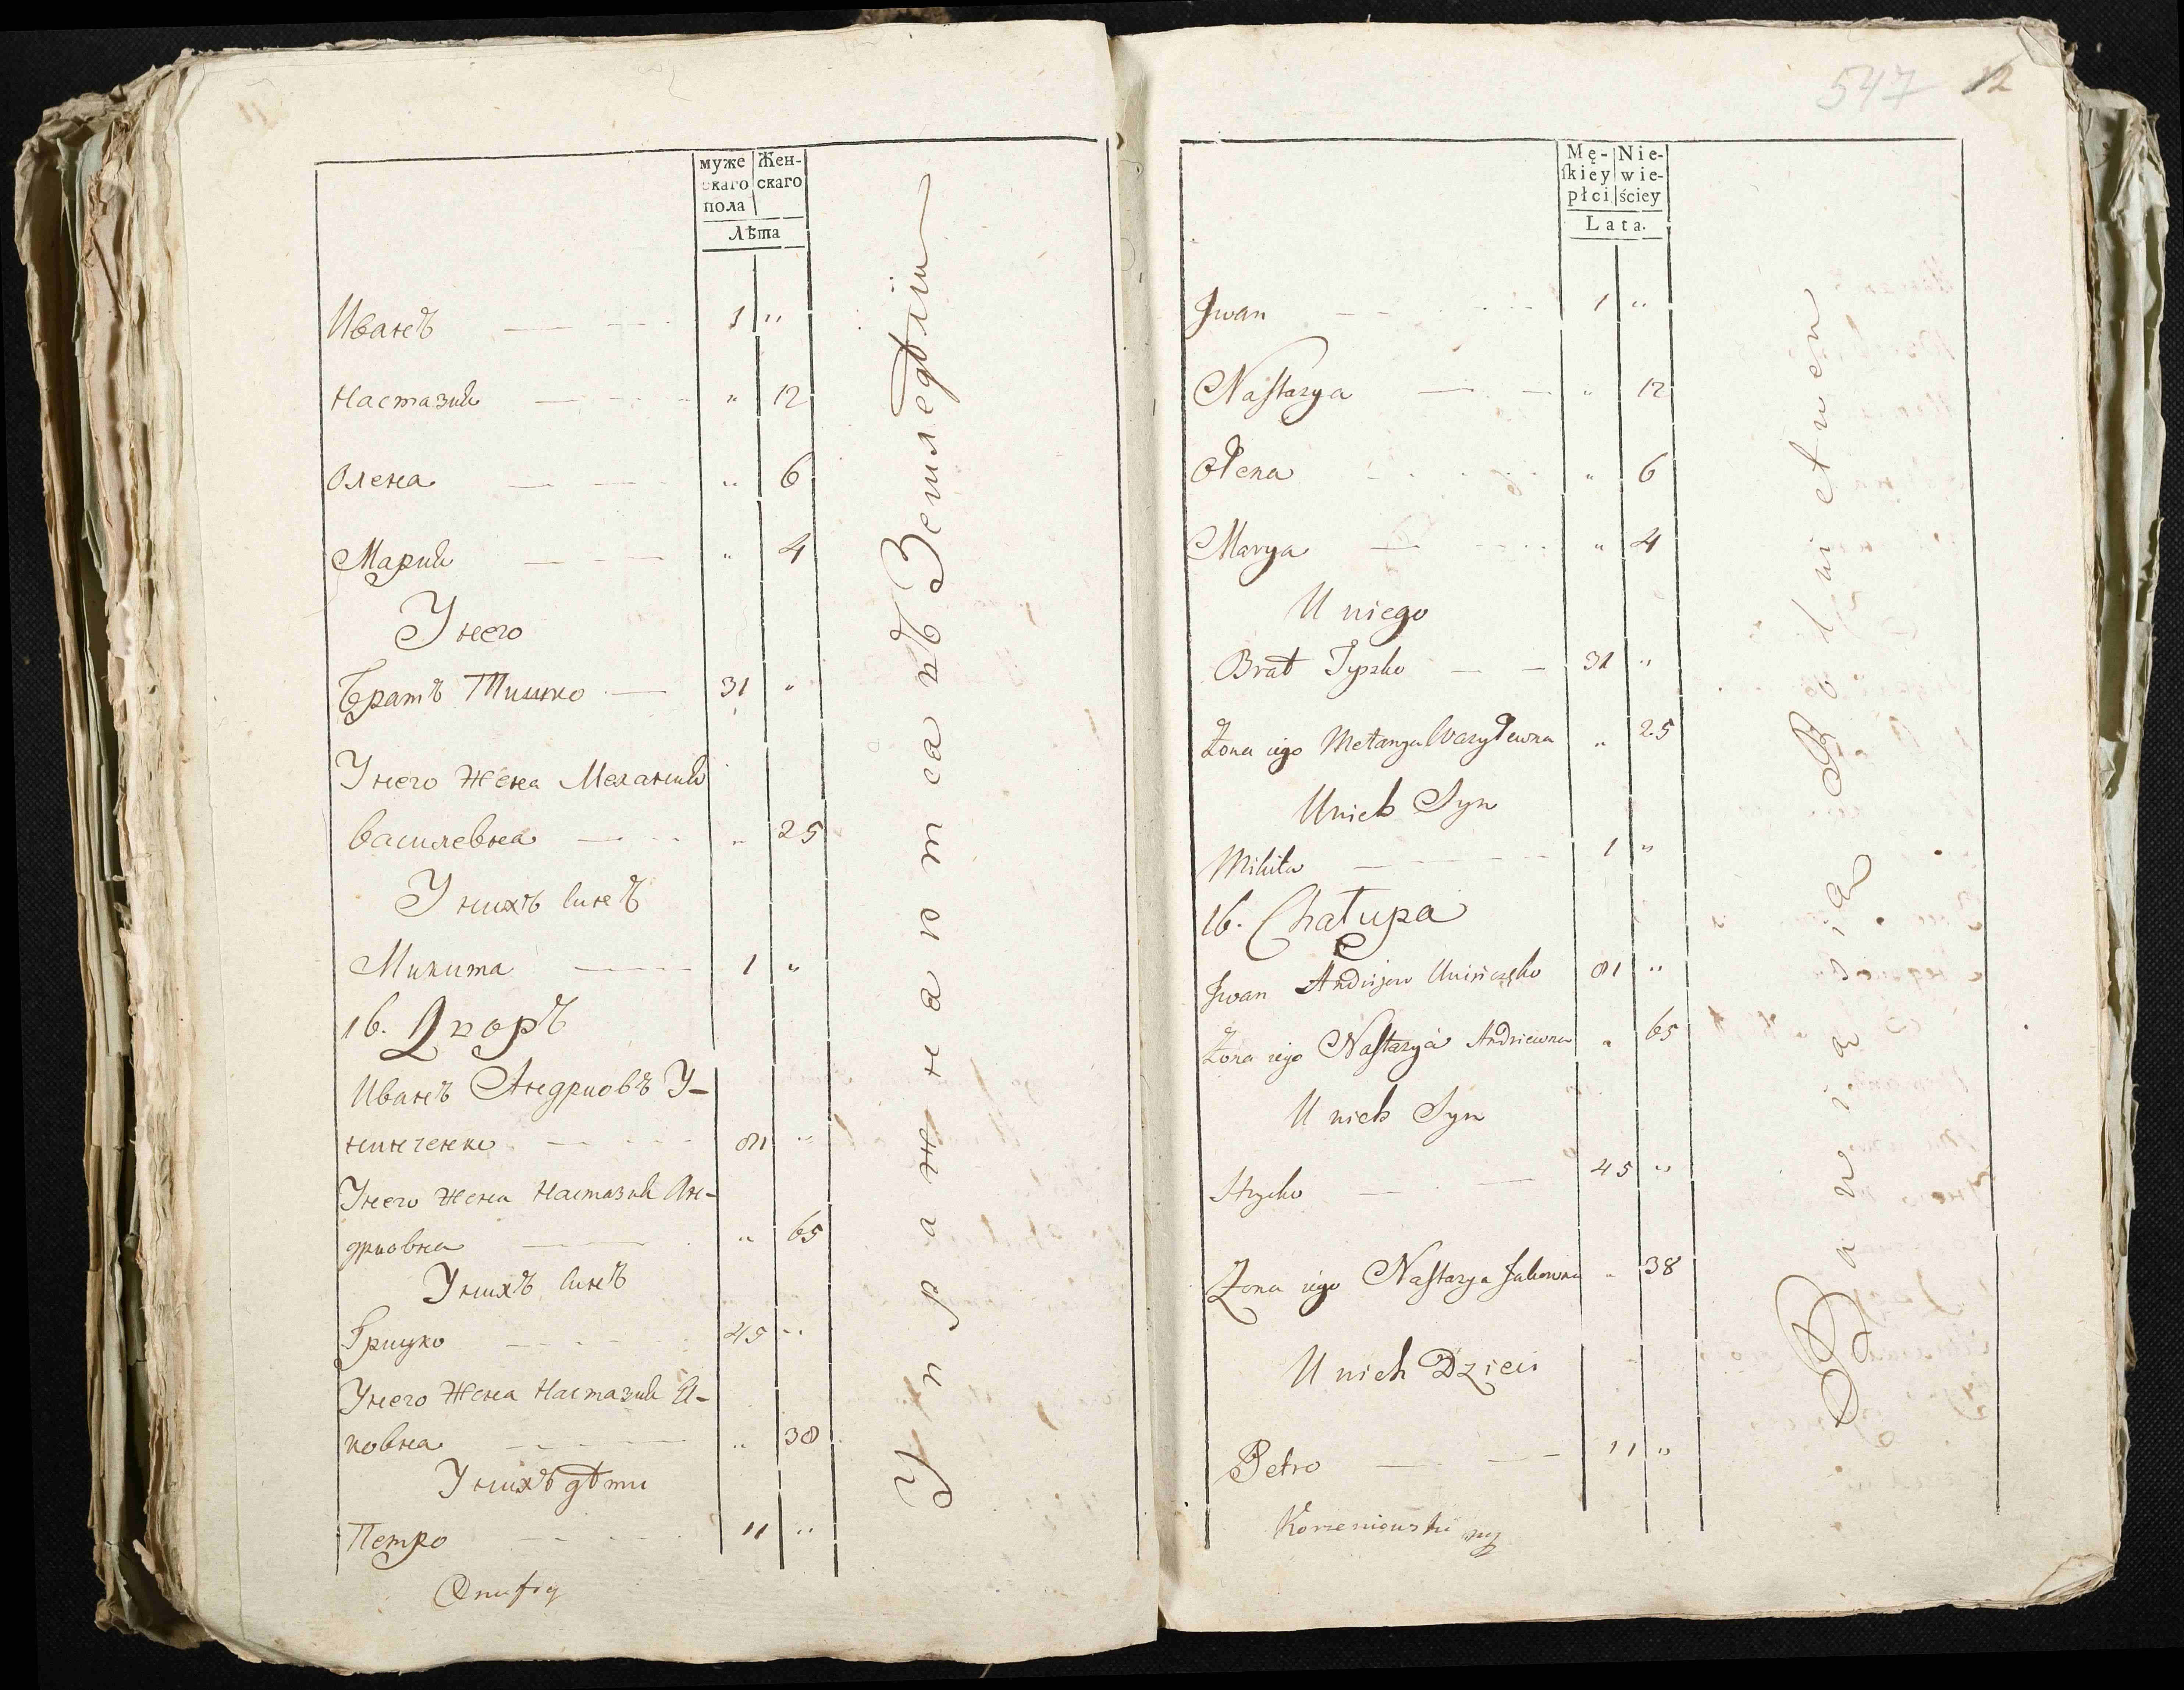 муже Жен-
скаго скаго
пола
Лѣта
Иванъ 1 "
Настазия " 12
Олена " 6
Мария " 4
У него
Братъ Тишко 31 "
У него жена Мелания
Василевна " 25
У нихъ Синъ
Микита 1 "
16. Дворъ
Иванъ Андриовъ У-
нинченко 81 "
У него жена Настазия Ан-
дриовна " 65
У нихъ Синъ
Грицко 45 "
У него жена Настазия Я-
ковна " 38
У нихъ дѣти
Петро 11 "
Onufry
Упражняются Земледѣлiем
547 12
Mę- Nie-
skiey wie-
płci ściey
Lata.
Jwan 1 "
Nastazya " 12
Ołena " 6
Marya " 4
U niego
Brat Tyszko 31 "
Żona iego Mełanya Wasylewna " 25
U nich Syn
Mikita 1 "
16. Chałupa
Jwan Andrijow Uninczęko 81 "
Żona iego Nastazya Andriewna " 65
U nich Syn
Hrycko 45 "
Żona iego Nastazya Jakowna " 38
U nich Dzieci
Petro 11 "
Korzeniowski
Bawią się Rolnictwem